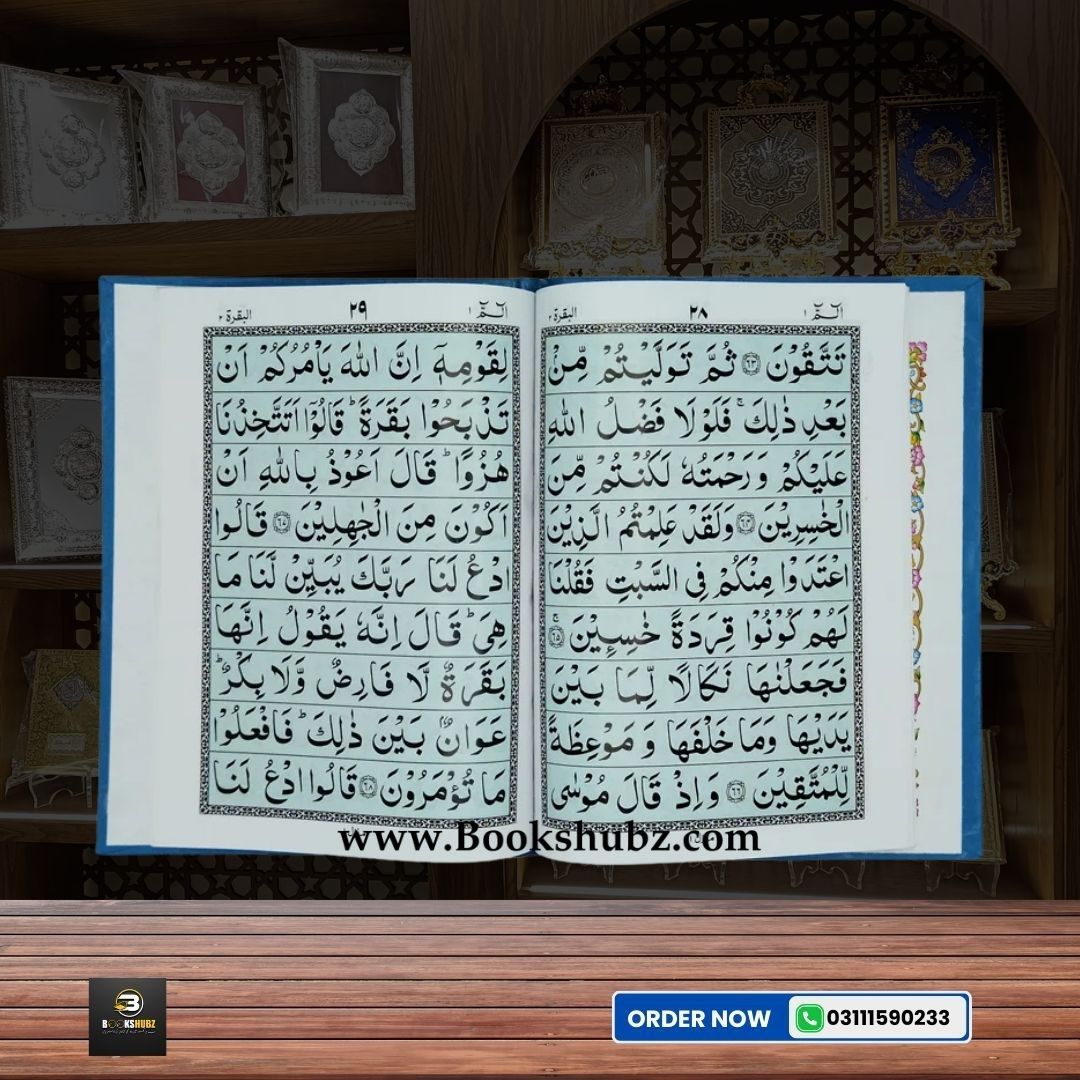 الٓمّٓ ١
٢٨
البقرة ٢
تَتَّقُوْنَ ﴿٦٣﴾ ثُمَّ تَوَلَّيْتُمْ مِّنْۢ
بَعْدِ ذٰلِكَ ۚ فَلَوْلَا فَضْلُ اللّٰهِ
عَلَيْكُمْ وَرَحْمَتُهٗ لَكُنْتُمْ مِّنَ
الْخٰسِرِيْنَ ﴿٦٤﴾ وَلَقَدْ عَلِمْتُمُ الَّذِيْنَ
اعْتَدَوْا مِنْكُمْ فِي السَّبْتِ فَقُلْنَا
لَهُمْ كُوْنُوْا قِرَدَةً خٰسِـِٕيْنَ ﴿٦٥﴾ۚ
فَجَعَلْنٰهَا نَكَالًا لِّمَا بَيْنَ
يَدَيْهَا وَمَا خَلْفَهَا وَ مَوْعِظَةً
لِّلْمُتَّقِيْنَ ﴿٦٦﴾ وَاِذْ قَالَ مُوْسٰى
الٓمّٓ ١
٢٩
البقرة ٢
لِقَوْمِهٖٓ اِنَّ اللّٰهَ يَاْمُرُكُمْ اَنْ
تَذْبَحُوْا بَقَرَةً ؕ قَالُوْٓا اَتَتَّخِذُنَا
هُزُوًا ؕ قَالَ اَعُوْذُ بِاللّٰهِ اَنْ
اَكُوْنَ مِنَ الْجٰهِلِيْنَ ﴿٦٧﴾ قَالُوا
ادْعُ لَنَا رَبَّكَ يُبَيِّنْ لَّنَا مَا
هِيَ ؕ قَالَ اِنَّهٗ يَقُوْلُ اِنَّهَا
بَقَرَةٌ لَّا فَارِضٌ وَّلَا بِكْرٌ ؕ
عَوَانٌۢ بَيْنَ ذٰلِكَ ؕ فَافْعَلُوْا
مَا تُؤْمَرُوْنَ ﴿٦٨﴾ قَالُوا ادْعُ لَنَا
www.Bookshubz.com
B
BOOKSHUBZ
ORDER NOW 03111590233